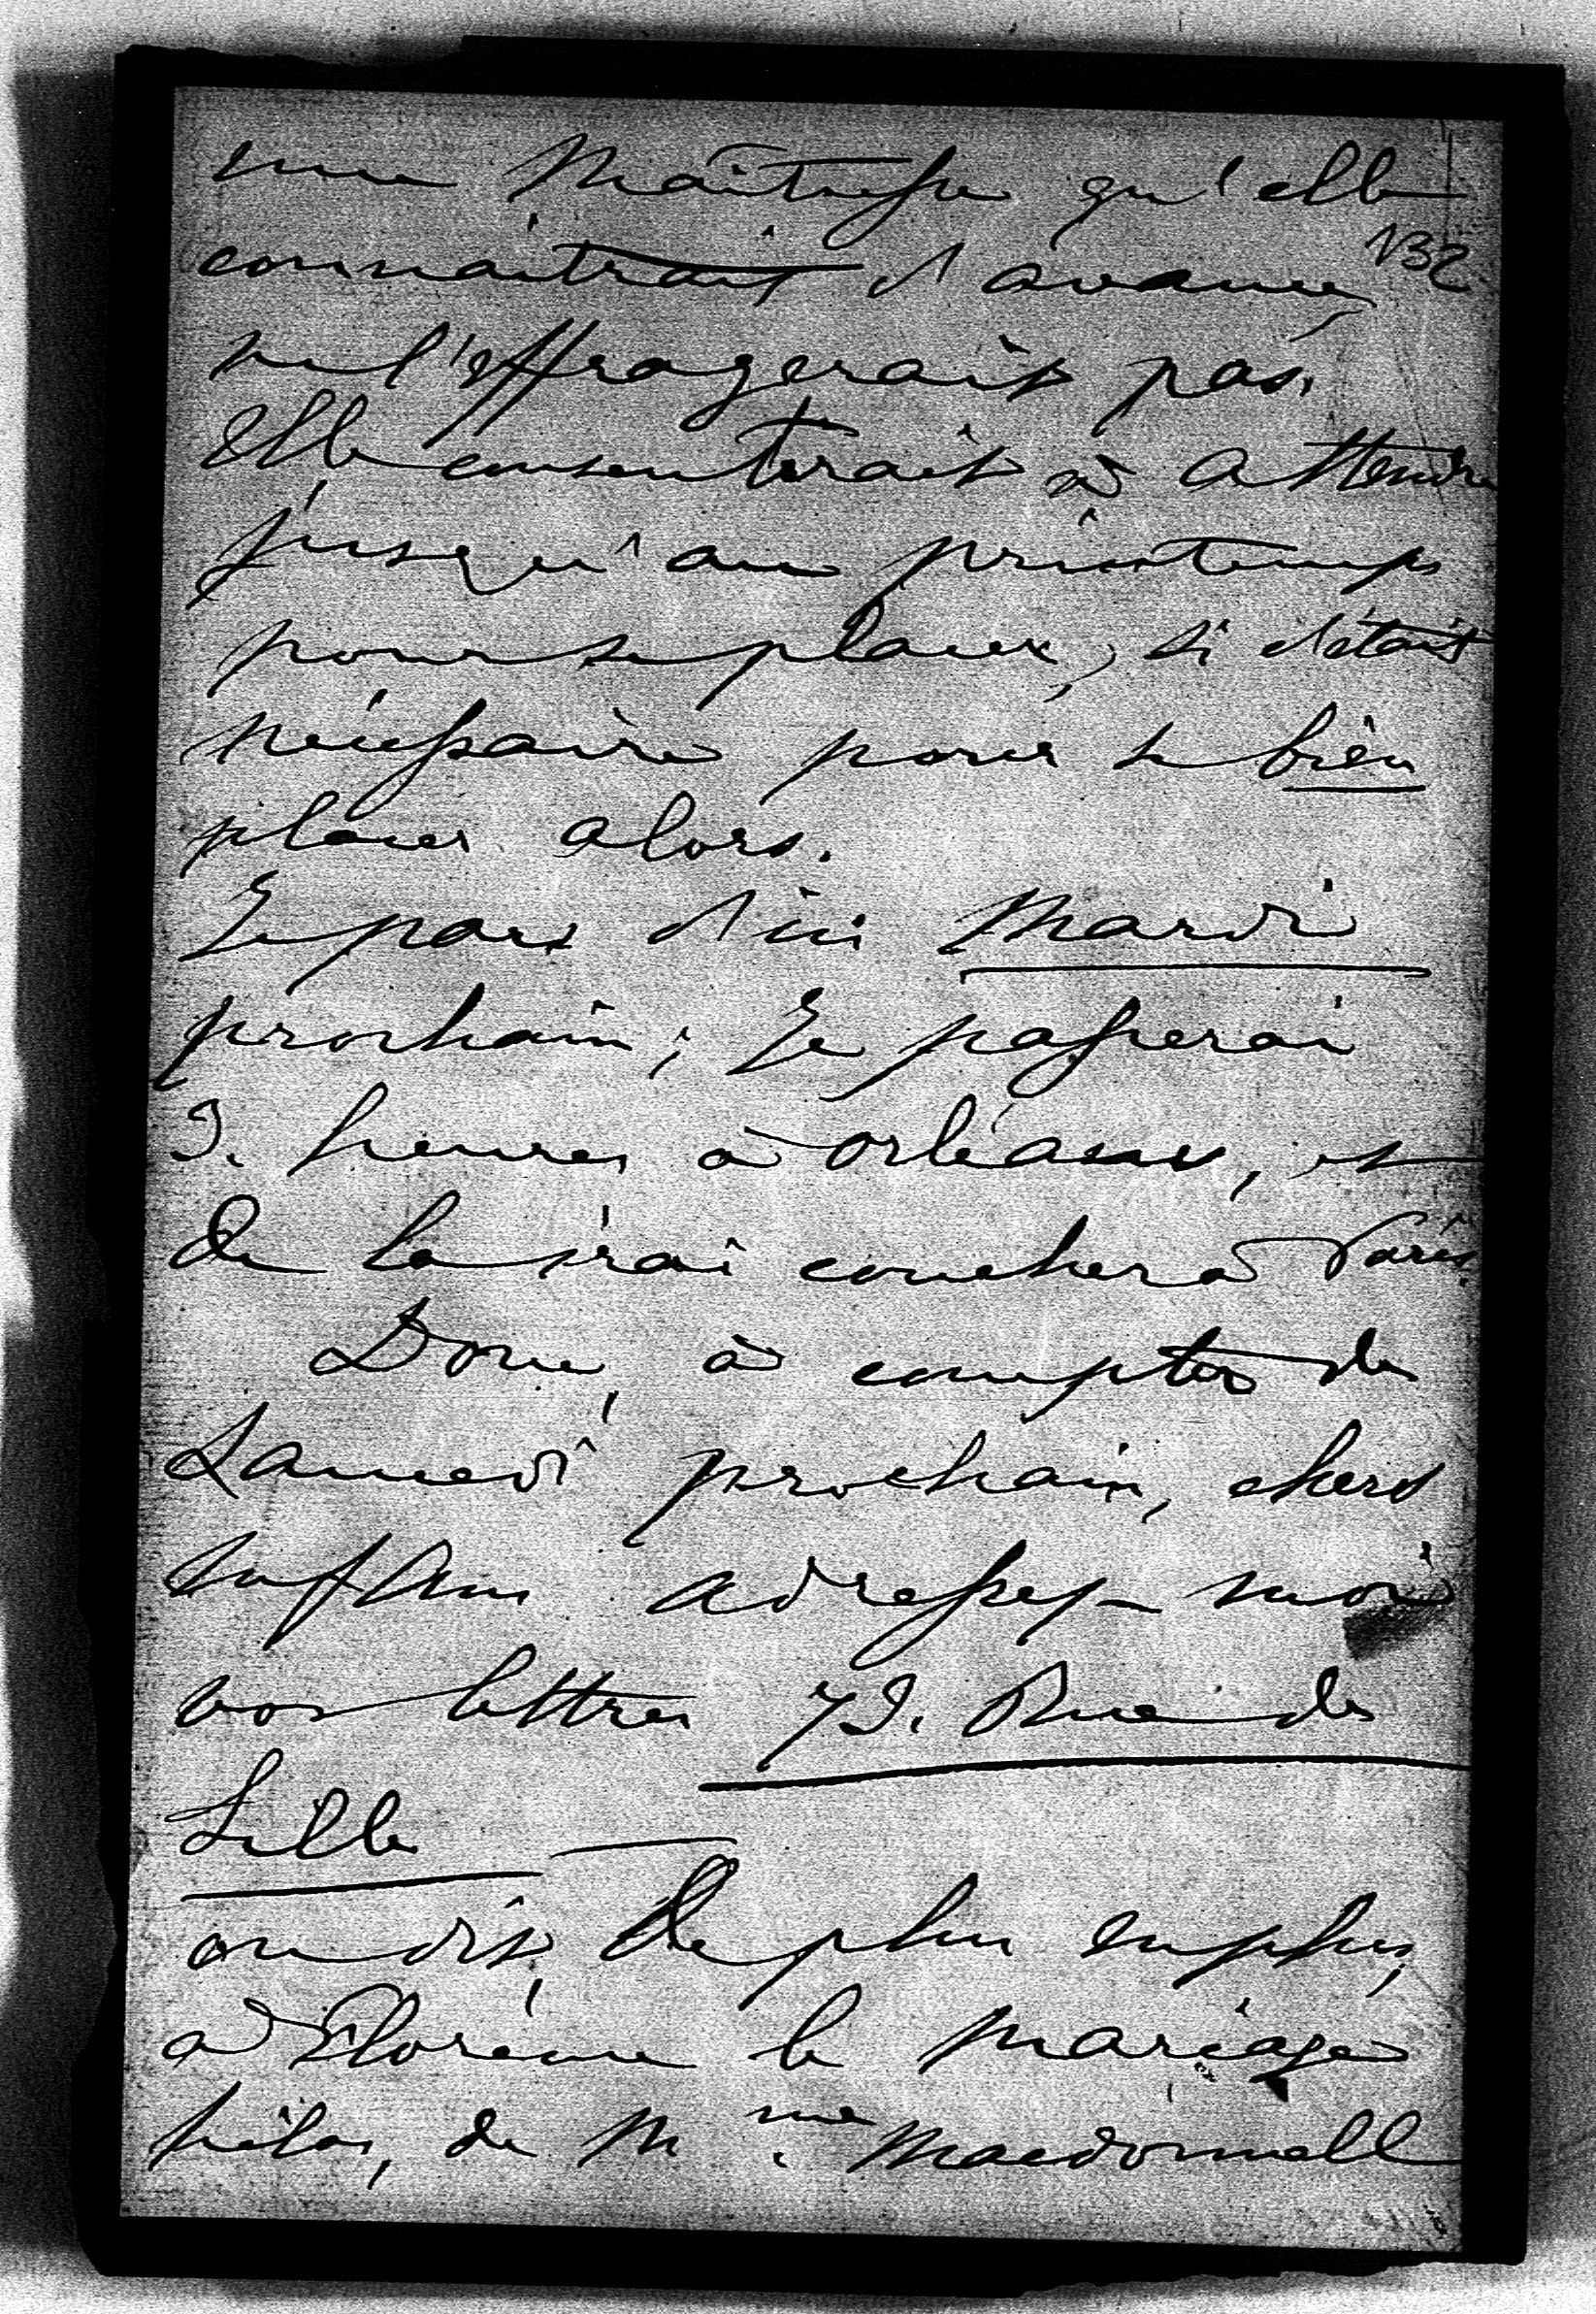 une Maîtresse qu'elle
132
connaitrait d'avance,
ne l'effrayerait pas.
Elle consenterait à attendre
jusqu'au printemps
pour se placer, si c'était
nécessaire pour se bien
placer alors.
Je pars d'ici Mardi
prochain; Je passerai
3. heures à Orléans, et
de la irai coucher à Paris.
Donc, à compter de
Samedi prochain, chers
enfans adressez-moi
vos lettres 73. Rue de
Lille
on dit, de plus en plus,
à Florence le mariage
hélas, de Mme. Macdonnell